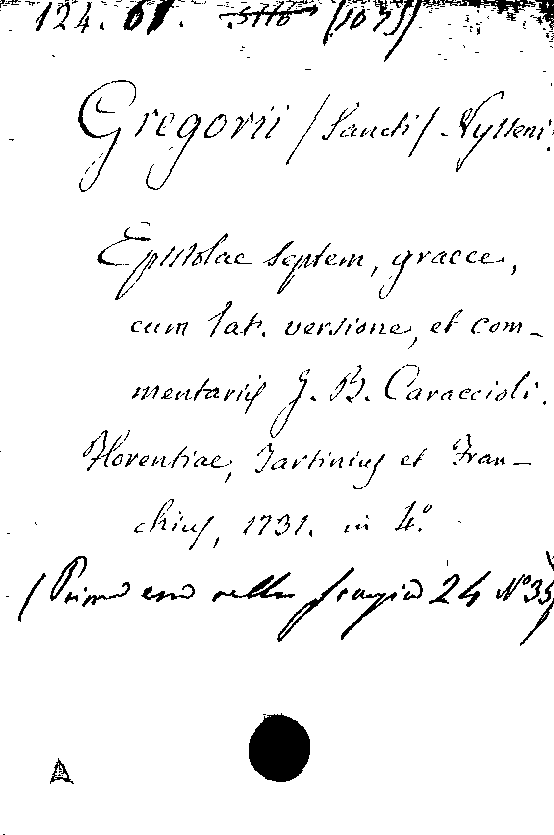 124. 61. 5116 (1035)
Gregorii / Sancti / Nysseni.
Epistolae septem, graece,
cum lat. versione, et com-
mentariis J. B. Caraccioli.
Florentiae, Tartinius et Fran-
chius, 1731. in 4°.
(Prima era nella 24 N° 35)